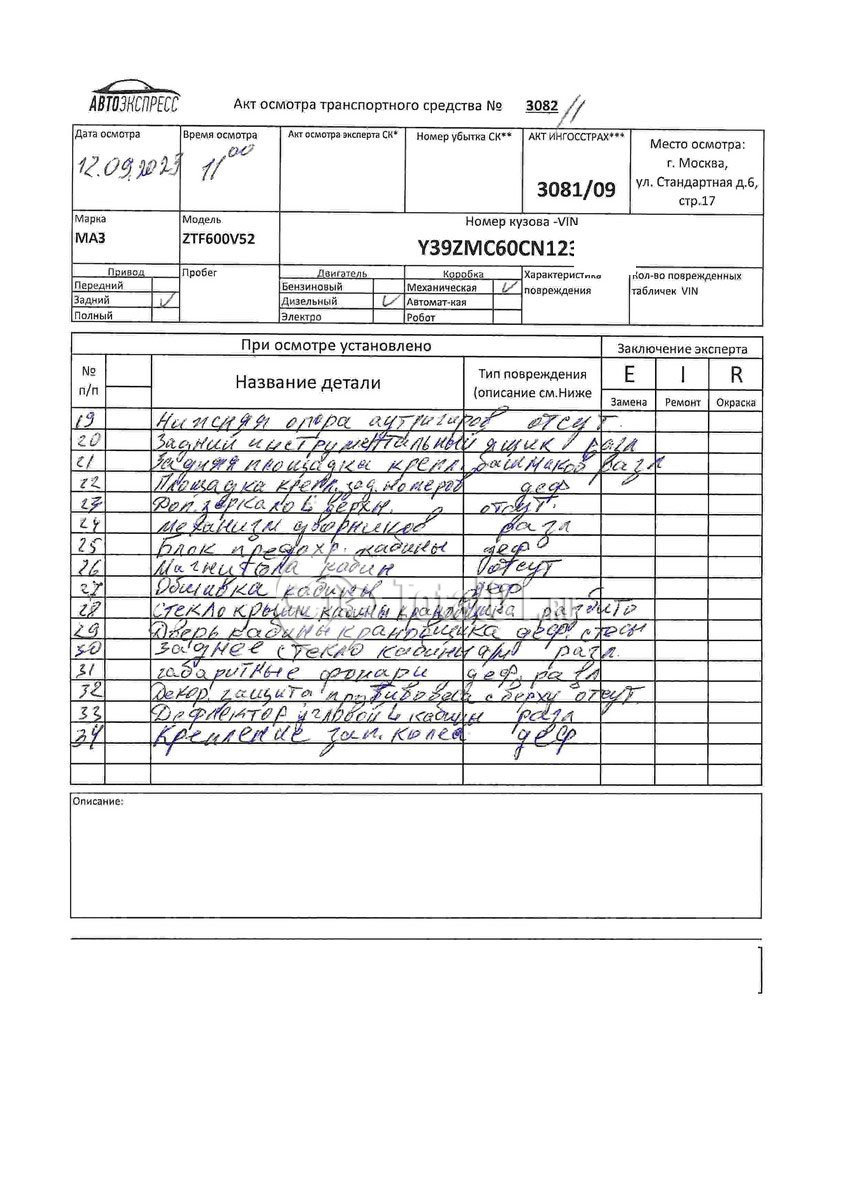 АВТОЭКСПРЕСС
Акт осмотра транспортного средства № 3082/11
Дата осмотра Время осмотра Акт осмотра эксперта СК* Номер убытка СК** АКТ ИНГОССТРАХ*** Место осмотра:
г. Москва,
ул. Стандартная д.6,
стр.17
12.09.2023 11 00 3081/09
Марка Модель Номер кузова -VIN
МАЗ ZTF600V52 Y39ZMC60CN123
Привод Пробег Двигатель Коробка Характеристика повреждения Кол-во поврежденных табличек VIN
Передний Бензиновый Механическая ✓
Задний ✓ Дизельный ✓ Автомат-кая
Полный Электро Робот
При осмотре установлено Заключение эксперта
№ п/п Название детали Тип повреждения (описание см.Ниже E I R
Замена Ремонт Окраска
19 Нижняя опора аутригиров отсут.
20 Задний инструментальный ящик разл
21 Задняя площадка крепл. башмаков разл
22 Площадка крепл. зад. номеров деф
23 Доп. зеркало L верхн. отсут.
24 Механизм дворников разл
25 Блок предохр. кабины деф
26 Магнитола кабин отсут
27 Обшивка кабины деф
28 Стекло крыши кабины крановщика разбито
29 Дверь кабины крановщика деф.
30 Заднее стекло кабины разл.
31 габаритные фонари деф, разл
32 Декор. защита сверху отсут
33 Дефлектор угловой L кабин разл
34 Крепление зап. колеса деф
Описание: